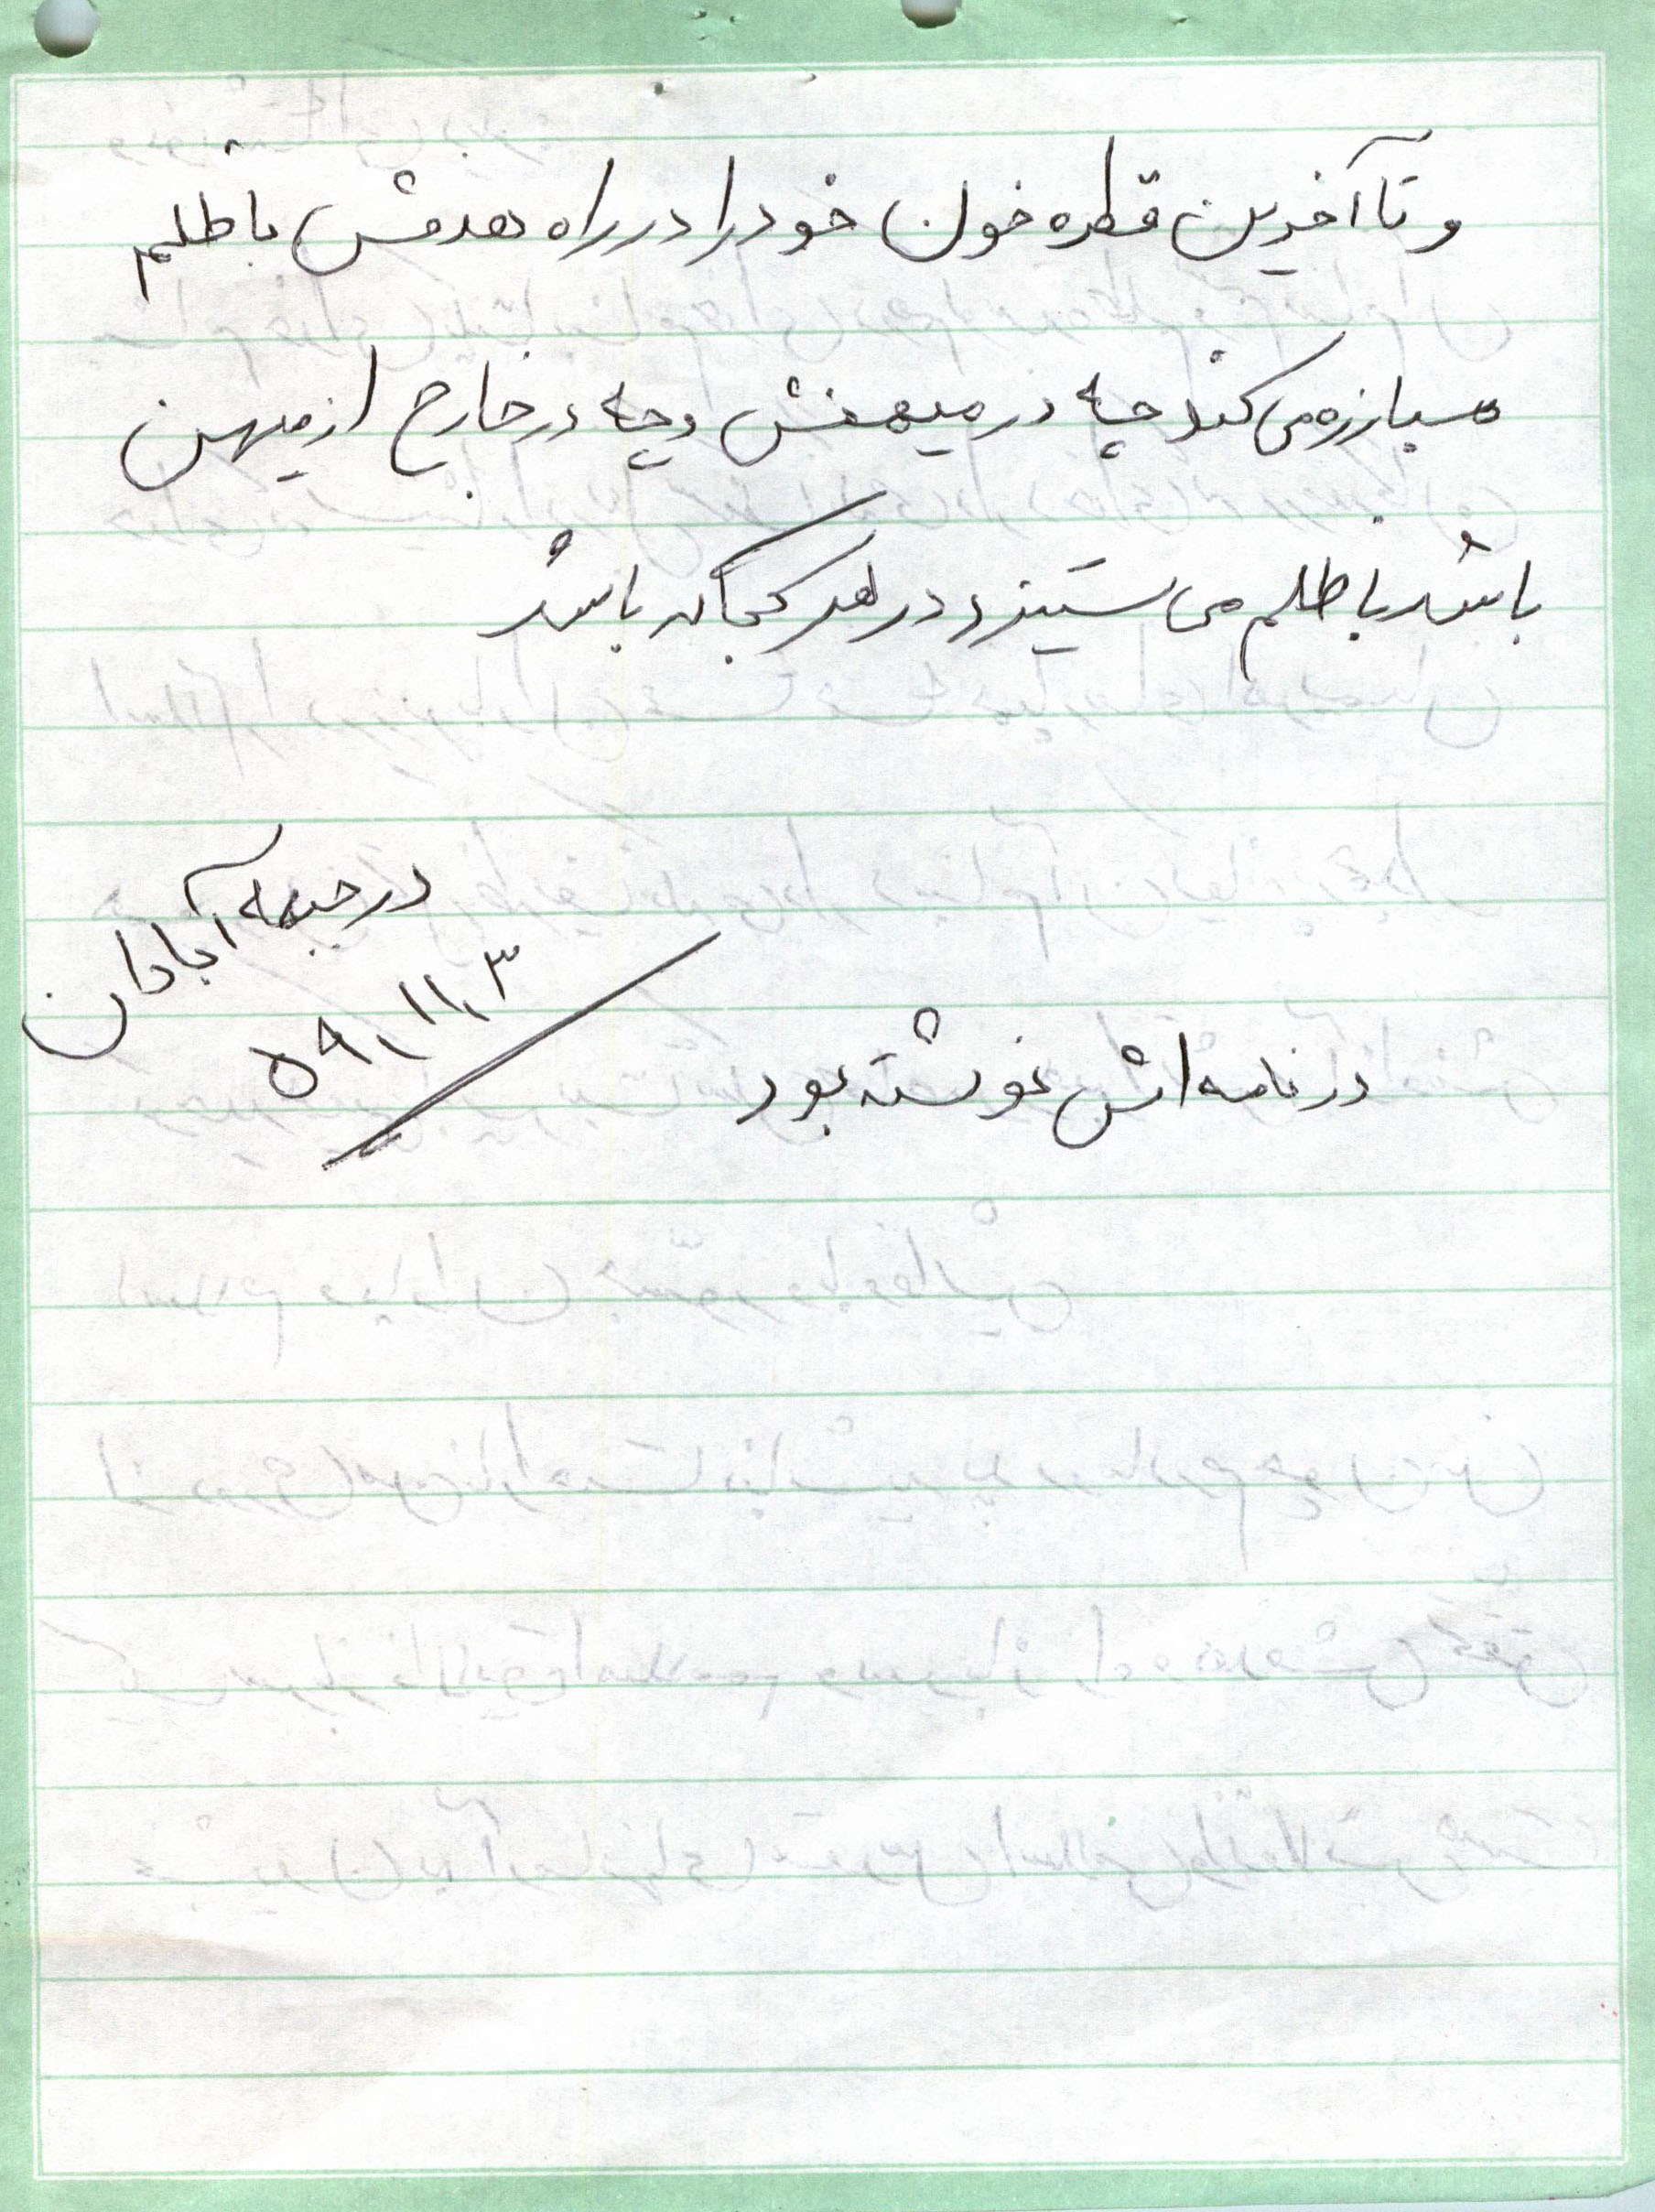 و تا آخرین قطره خون خود را در راه هدفش با ظلم
مبارزه می کند چه در میهنش و چه در خارج از میهن
باشد با ظلم می ستیزد در هر کجا که باشد
در جبهه آبادان
۵۹,۱۱,۳
در نامه اش نوشته بود